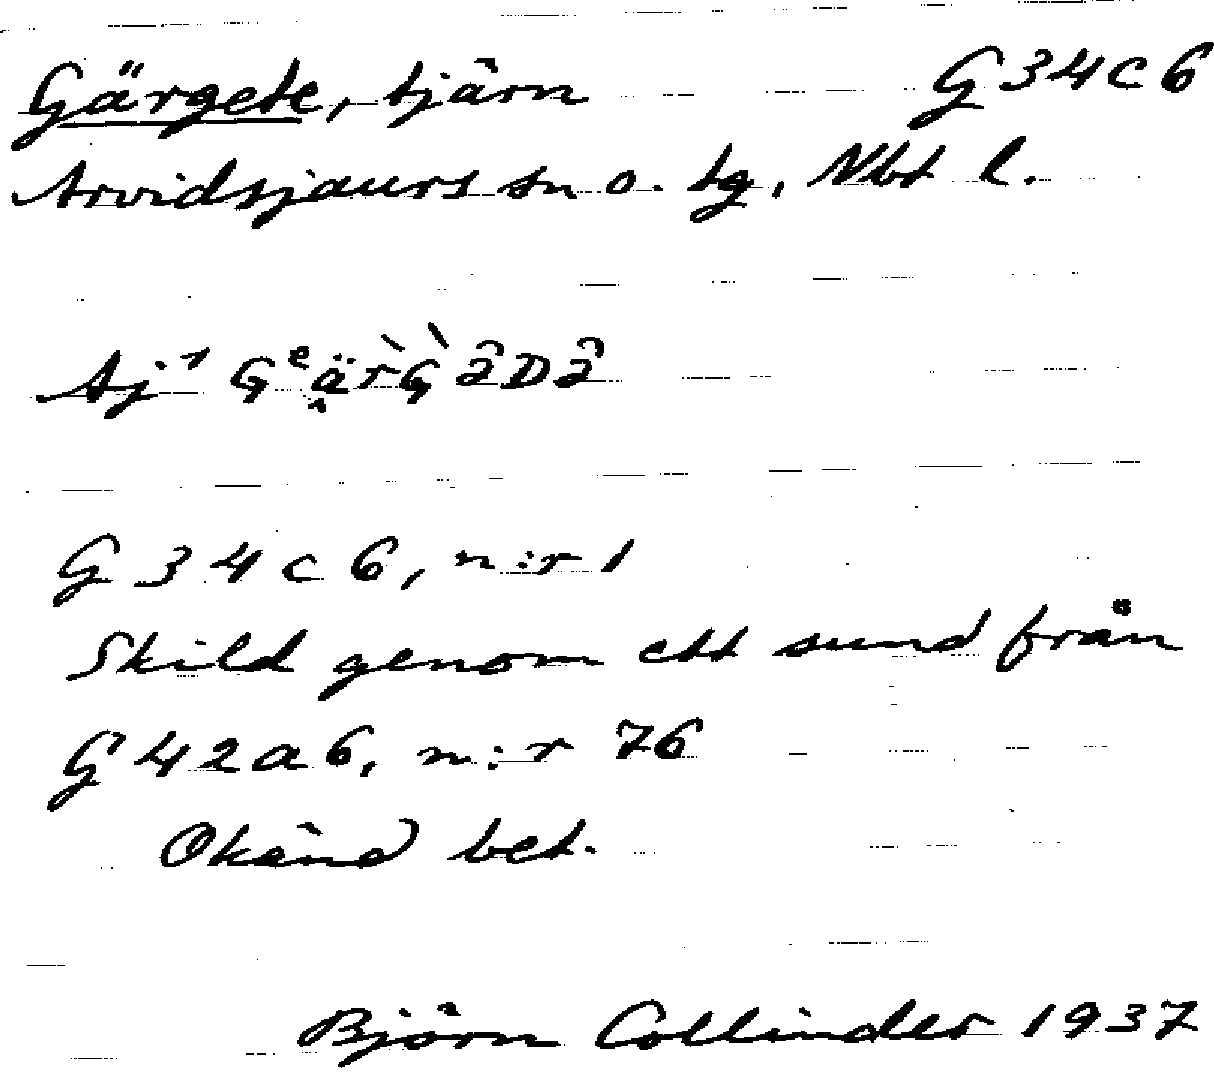 Gärgete, tjärn G34c6
Arvidsjaurs sn o. tg, Nbt l.
Aj¹ Gᵉä̭r̀G̀ə̑Də̑
G34c6, n:r 1
Skild genom ett sund från
G42a6, n:r 76
Okänd bet.
Björn Collinder 1937